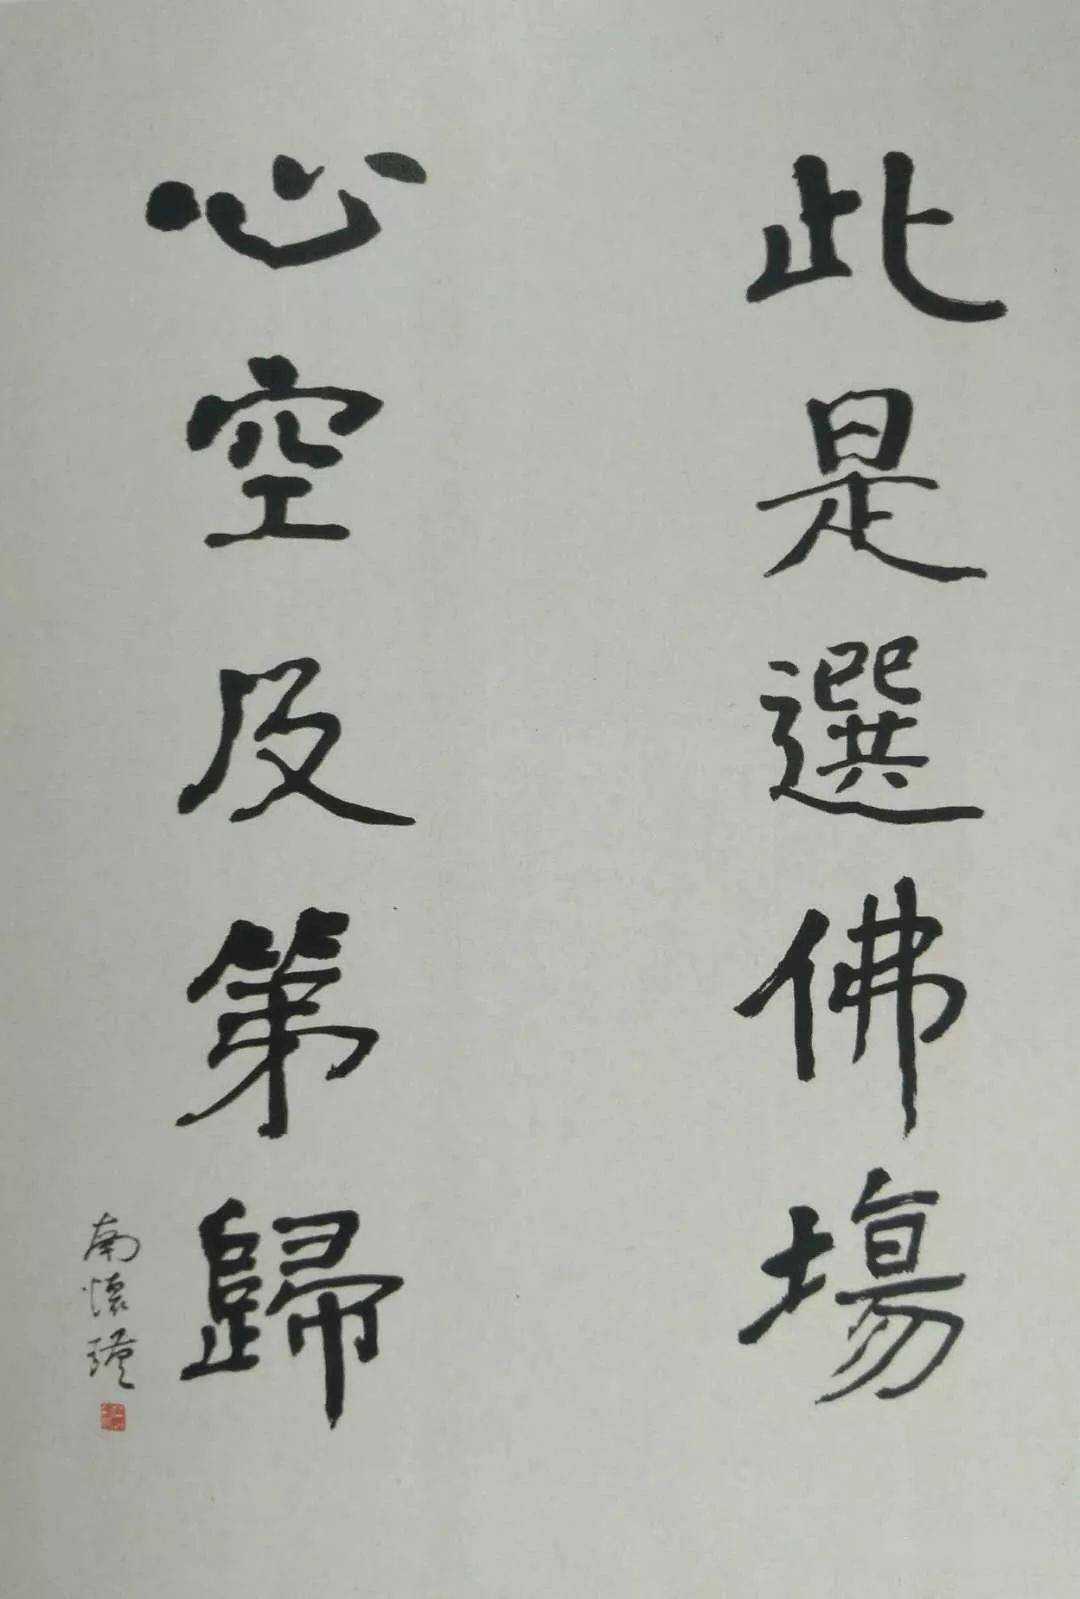 此是選佛場
心空及第歸
南懷瑾